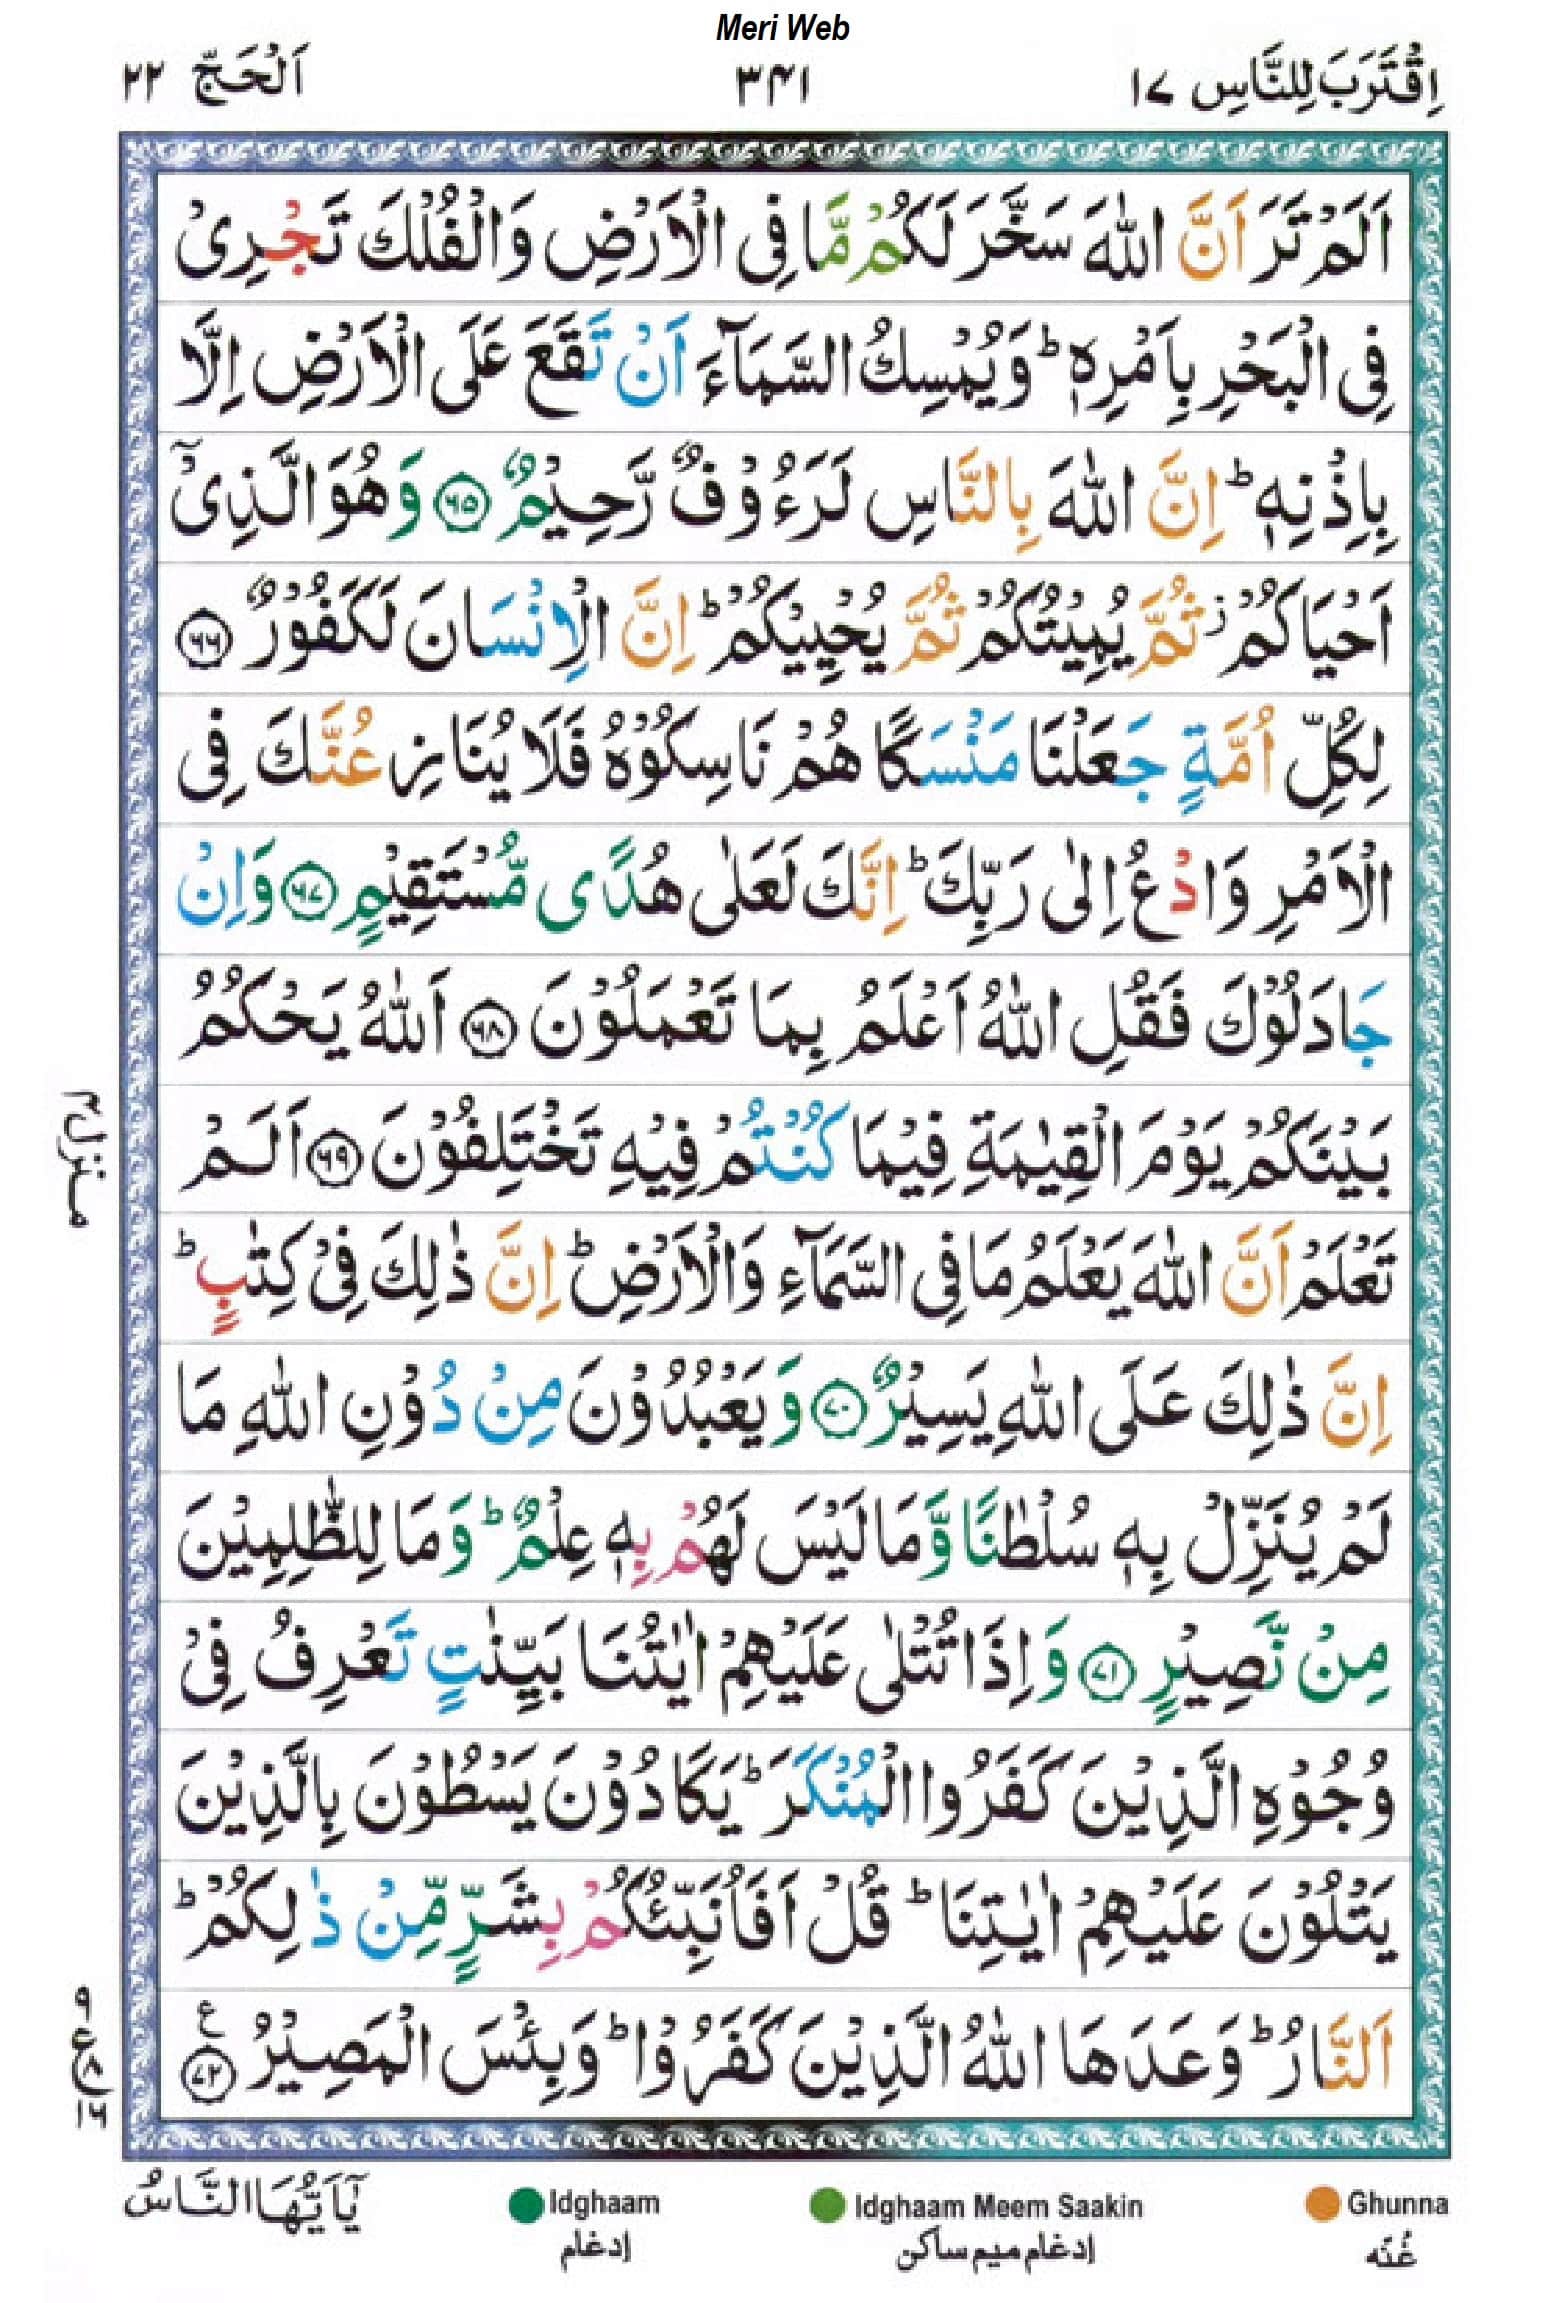 Meri Web
اِقْتَرَبَ لِلنَّاسِ ١٧
٣٤١
اَلْحَجّ ٢٢
اَلَمْ تَرَ اَنَّ اللّٰهَ سَخَّرَ لَكُمْ مَّا فِی الْاَرْضِ وَالْفُلْكَ تَجْرِیْ
فِی الْبَحْرِ بِاَمْرِهٖ ؕ وَیُمْسِكُ السَّمَآءَ اَنْ تَقَعَ عَلَی الْاَرْضِ اِلَّا
بِاِذْنِهٖ ؕ اِنَّ اللّٰهَ بِالنَّاسِ لَرَءُوْفٌ رَّحِیْمٌ ﴿٦٥﴾ وَهُوَ الَّذِیْۤ
اَحْیَاكُمْ ؗ ثُمَّ یُمِیْتُكُمْ ثُمَّ یُحْیِیْكُمْ ؕ اِنَّ الْاِنْسَانَ لَكَفُوْرٌ ﴿٦٦﴾
لِكُلِّ اُمَّةٍ جَعَلْنَا مَنْسَكًا هُمْ نَاسِكُوْهُ فَلَا یُنَازِعُنَّكَ فِی
الْاَمْرِ وَادْعُ اِلٰی رَبِّكَ ؕ اِنَّكَ لَعَلٰی هُدًی مُّسْتَقِیْمٍ ﴿٦٧﴾ وَاِنْ
جَادَلُوْكَ فَقُلِ اللّٰهُ اَعْلَمُ بِمَا تَعْمَلُوْنَ ﴿٦٨﴾ اَللّٰهُ یَحْكُمُ
بَیْنَكُمْ یَوْمَ الْقِیٰمَةِ فِیْمَا كُنْتُمْ فِیْهِ تَخْتَلِفُوْنَ ﴿٦٩﴾ اَلَمْ
تَعْلَمْ اَنَّ اللّٰهَ یَعْلَمُ مَا فِی السَّمَآءِ وَالْاَرْضِ ؕ اِنَّ ذٰلِكَ فِیْ كِتٰبٍ ؕ
اِنَّ ذٰلِكَ عَلَی اللّٰهِ یَسِیْرٌ ﴿٧٠﴾ وَیَعْبُدُوْنَ مِنْ دُوْنِ اللّٰهِ مَا
لَمْ یُنَزِّلْ بِهٖ سُلْطٰنًا وَّمَا لَیْسَ لَهُمْ بِهٖ عِلْمٌ ؕ وَمَا لِلظّٰلِمِیْنَ
مِنْ نَّصِیْرٍ ﴿٧١﴾ وَاِذَا تُتْلٰی عَلَیْهِمْ اٰیٰتُنَا بَیِّنٰتٍ تَعْرِفُ فِیْ
وُجُوْهِ الَّذِیْنَ كَفَرُوا الْمُنْكَرَ ؕ یَكَادُوْنَ یَسْطُوْنَ بِالَّذِیْنَ
یَتْلُوْنَ عَلَیْهِمْ اٰیٰتِنَا ؕ قُلْ اَفَاُنَبِّئُكُمْ بِشَرٍّ مِّنْ ذٰلِكُمْ ؕ
اَلنَّارُ ؕ وَعَدَهَا اللّٰهُ الَّذِیْنَ كَفَرُوْا ؕ وَبِئْسَ الْمَصِیْرُ ﴿٧٢﴾ ع
منزل ٤
یٰۤاَیُّهَا النَّاسُ
Idghaam
Idghaam Meem Saakin
Ghunna
إدغام
إدغام میم ساکن
غُنّه